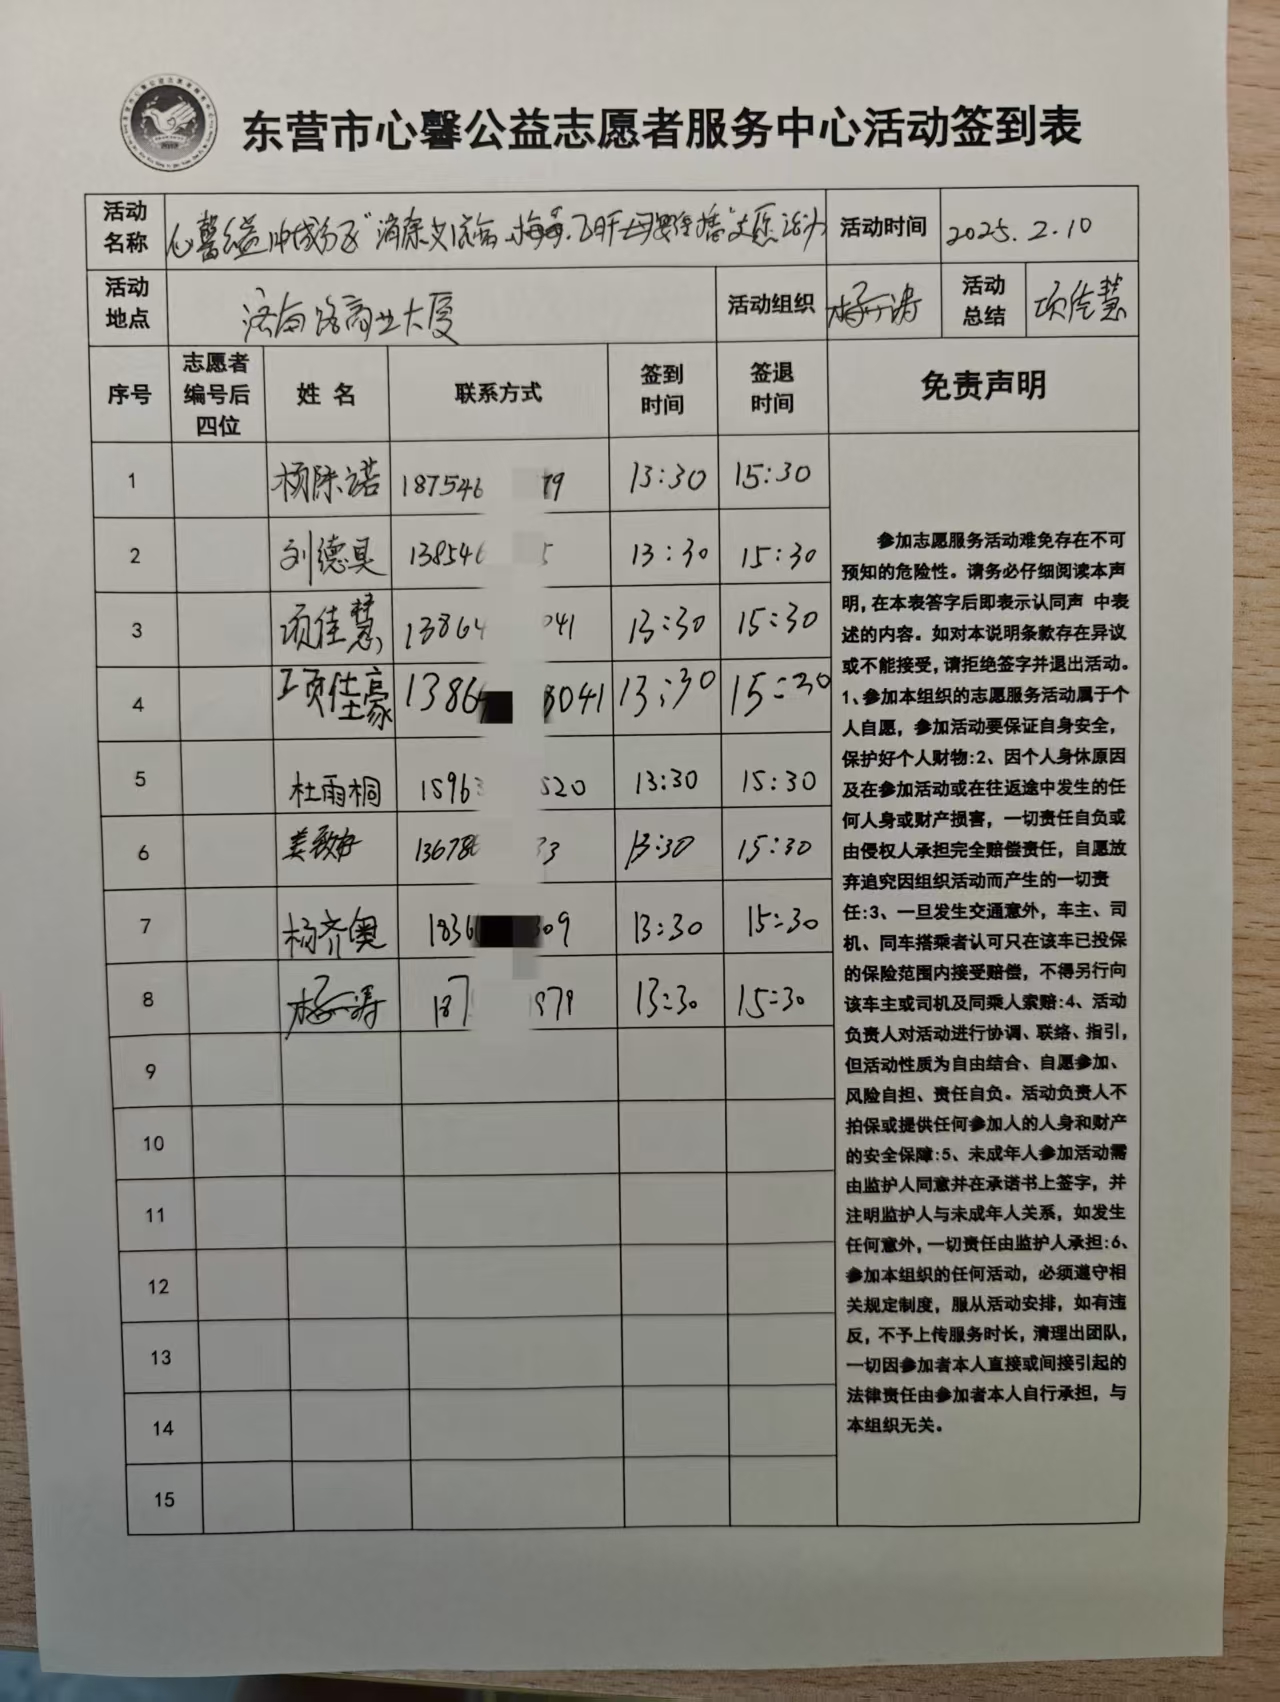 东营市心馨公益志愿者服务中心活动签到表
活动名称 心馨公益 活动时间 2025.2.10
活动地点 济南路商业大厦 活动组织 杨涛 活动总结 项佳慧
序号 志愿者编号后四位 姓名 联系方式 签到时间 签退时间 免责声明
1 杨陈诺 187546 79 13:30 15:30
2 刘德昊 13854 5 13:30 15:30
3 项佳慧 13864 041 13:30 15:30
4 项仕豪 1386 8041 13:30 15:30
5 杜雨桐 1596 520 13:30 15:30
6 13678 33 13:30 15:30
7 杨齐奥 1836 309 13:30 15:30
8 杨涛 187 979 13:30 15:30
9
10
11
12
13
14
15
参加志愿服务活动难免存在不可
预知的危险性。请务必仔细阅读本声
明,在本表答字后即表示认同声 中表
述的内容。如对本说明条款存在异议
或不能接受,请拒绝签字并退出活动。
1、参加本组织的志愿服务活动属于个
人自愿，参加活动要保证自身安全，
保护好个人财物:2、因个人身休原因
及在参加活动或在往返途中发生的任
何人身或财产损害，一切责任自负或
由侵权人承担完全赔偿责任，自愿放
弃追究因组织活动而产生的一切责
任:3、一旦发生交通意外，车主、司
机、同车搭乘者认可只在该车已投保
的保险范围内接受赔偿，不得另行向
该车主或司机及同乘人索赔:4、活动
负责人对活动进行协调、联络、指引，
但活动性质为自由结合、自愿参加、
风险自担、责任自负。活动负责人不
拍保或提供任何参加人的人身和财产
的安全保障:5、未成年人参加活动需
由监护人同意并在承诺书上签字，并
注明监护人与未成年人关系，如发生
任何意外,一切责任由监护人承担:6、
参加本组织的任何活动，必须遵守相
关规定制度，服从活动安排，如有违
反，不予上传服务时长，清理出团队，
一切因参加者本人直接或间接引起的
法律责任由参加者本人自行承担，与
本组织无关。